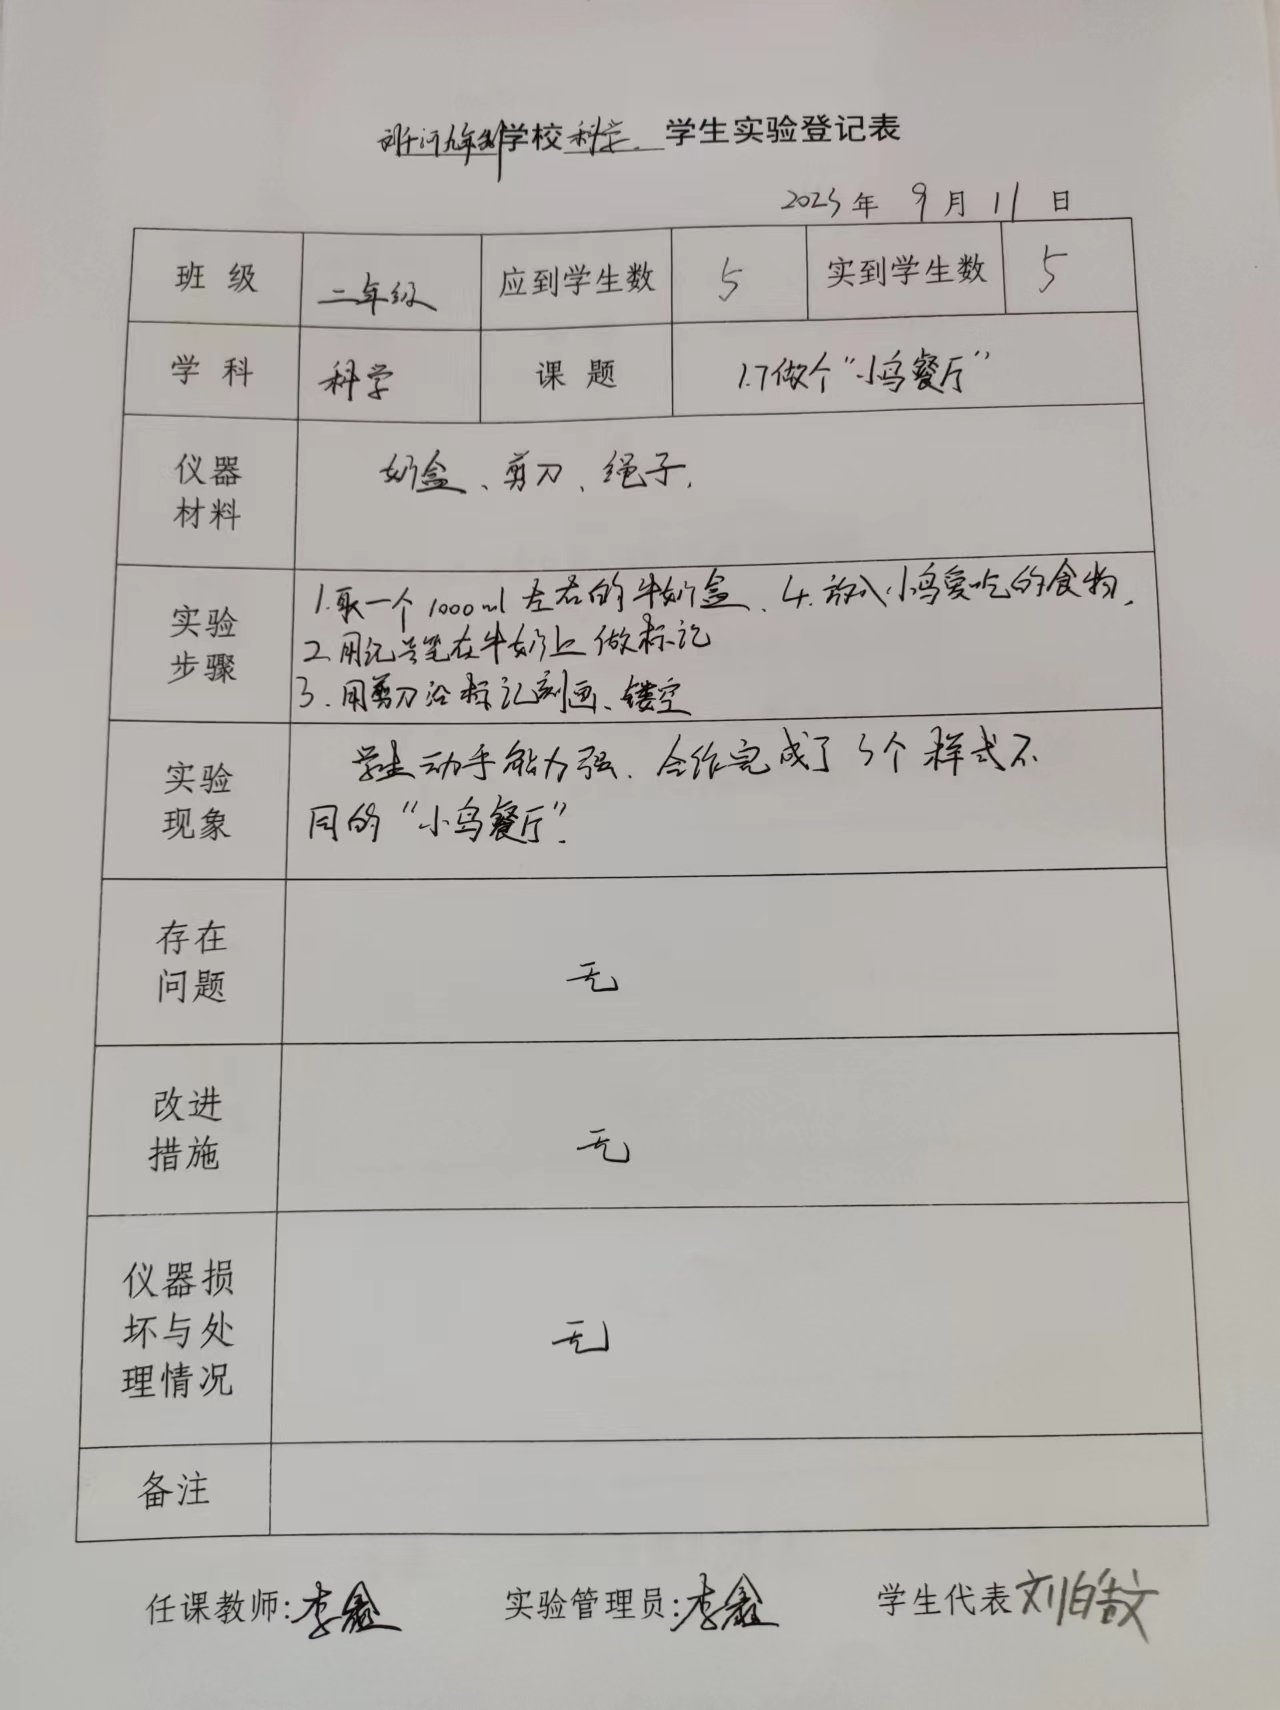 九年制学校科学 学生实验登记表
2023年 9月 11日
班 级 二年级 应到学生数 5 实到学生数 5
学 科 科学 课 题 1.7做个“小鸟餐厅”
仪器
材料
奶盒、剪刀、绳子.
实验
步骤
1.取一个1000ml左右的牛奶盒、4.放入小鸟爱吃的食物.
2.用记号笔在牛奶上做标记
3.用剪刀沿标记刻画、镂空
实验
现象
学生动手能力强.合作完成了5个样式不
同的“小鸟餐厅”.
存在
问题
无
改进
措施
无
仪器损
坏与处
理情况
无
备注
任课教师:李鑫 实验管理员:李鑫 学生代表 刘